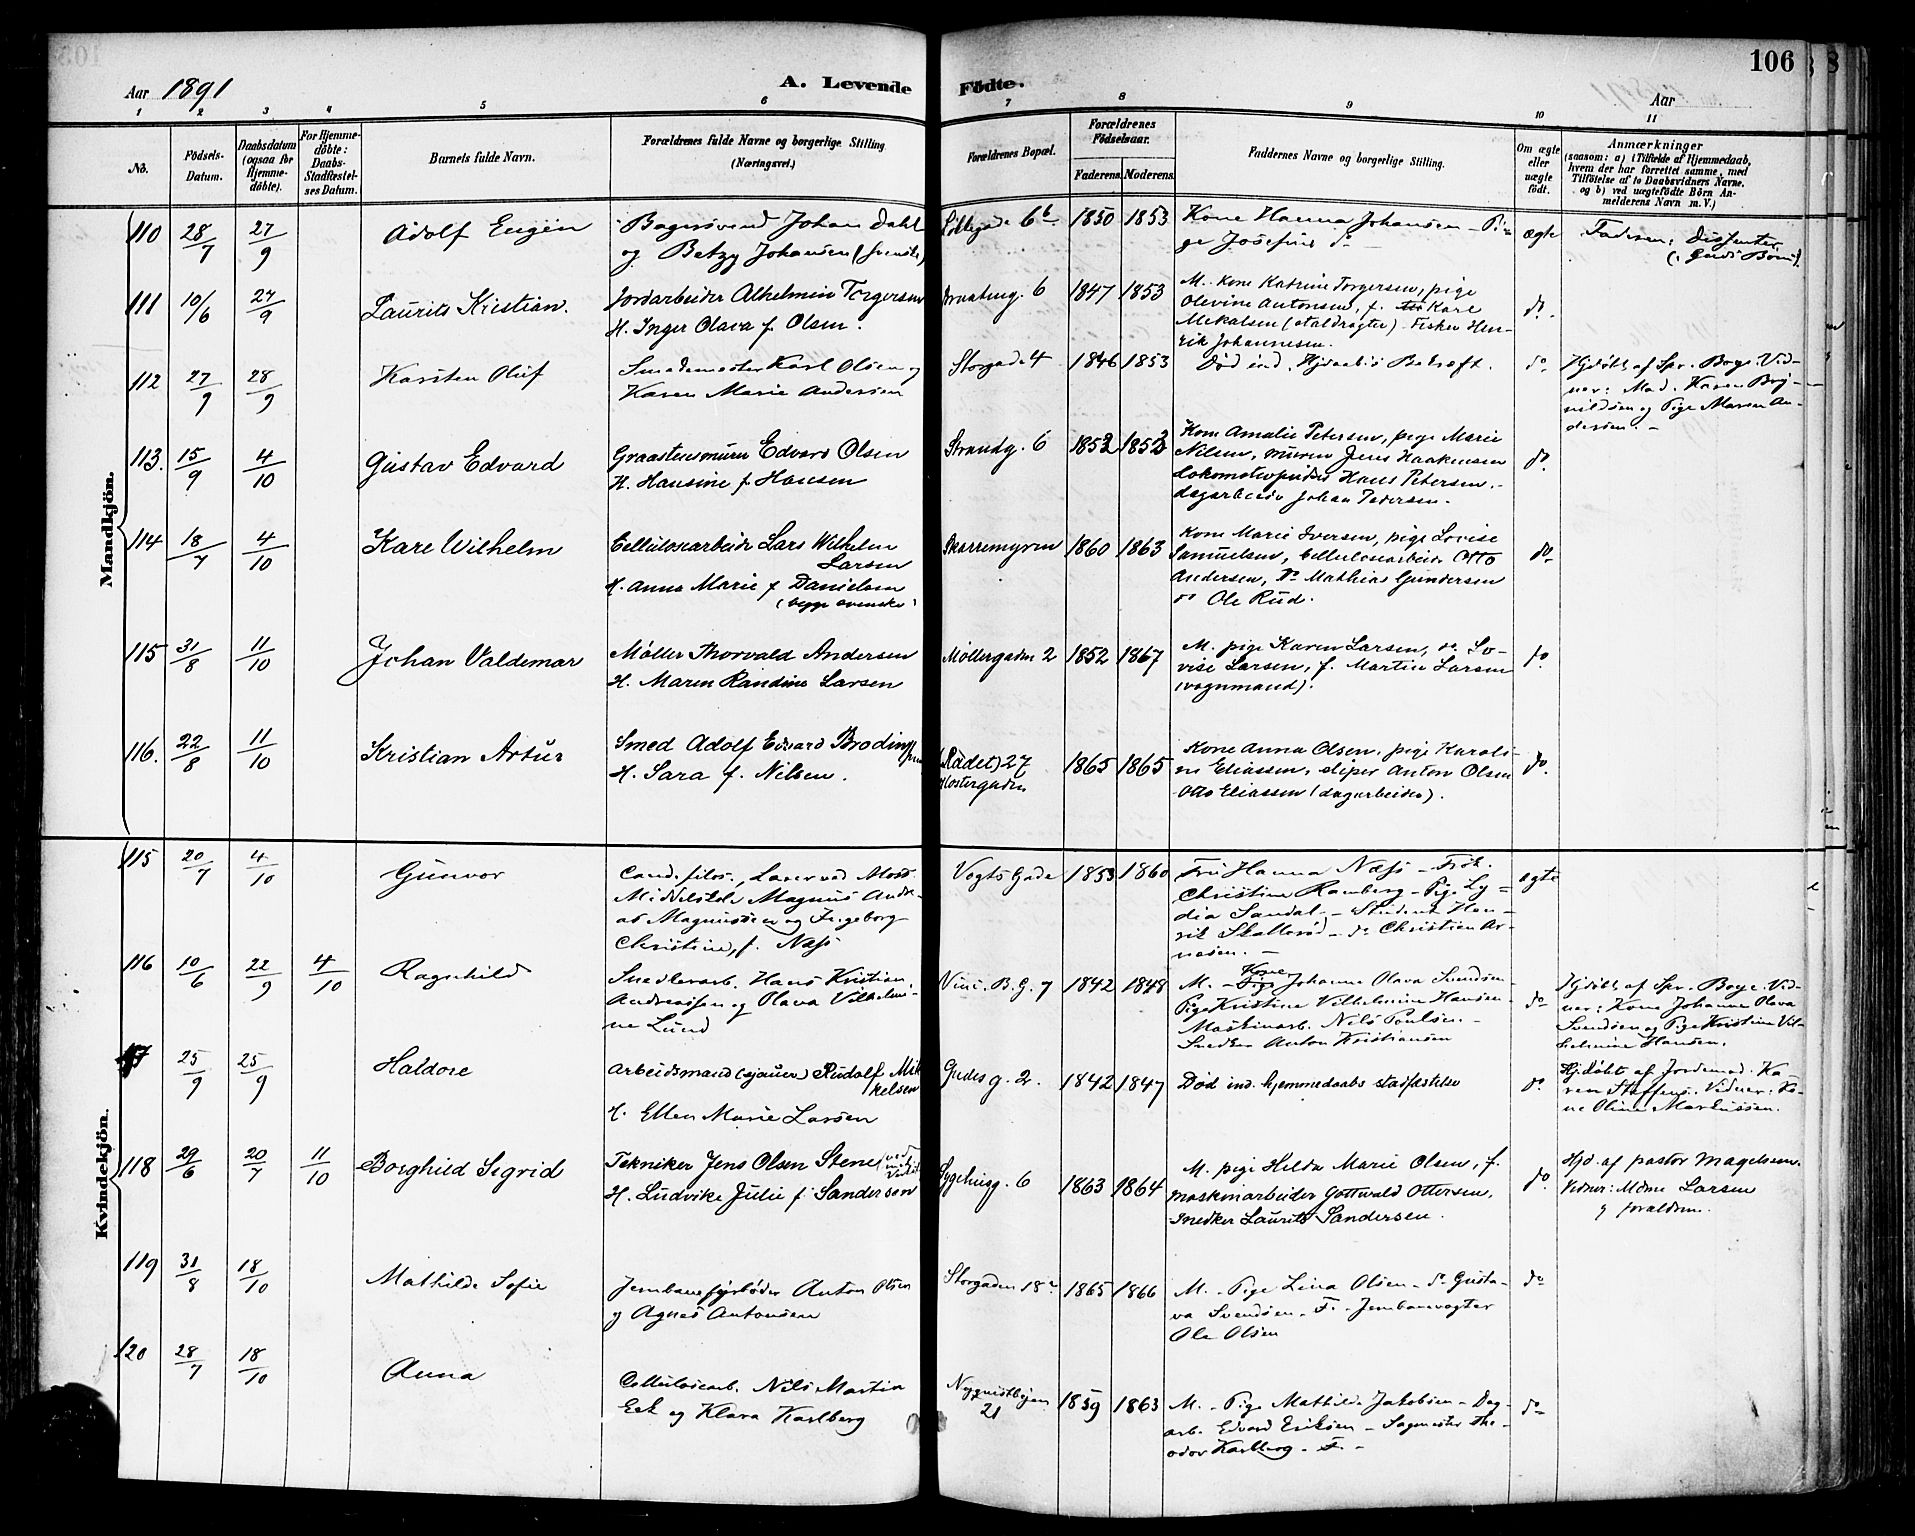 106
Aar 1891
A. Levende Fødte.
Aar
1 2 3 4 5 6 7 8 9 10 11
No.
Fødsels-
Datum.
Daabsdatum
(ogsaa for
Hjemme-
døbte).
For Hjemme-
døbte:
Daabs-
Stadfæstel-
ses Datum.
Barnets fulde Navn.
Forældrenes fulde Navne og borgerlige Stilling
(Næringsvei.)
Forældrenes Bopæl.
Forældrenes
Fødselsaar.
Faderens. Moderens.
Faddernes Navne og borgerlige Stilling.
Om ægte
eller
uægte
født.
Anmærkninger
(saasom: a) i Tilfælde af Hjemmedaab,
hvem der har forrettet samme, med
Tilføielse af to Daabsvidners Navne,
og b) ved uægtefødte Börn An-
melderens Navn m.V.)
Mandkjön.
110 28/7 27/9
Adolf Eugen
Bagersvend Johan Dahl
og Betzy Johansen (svenske)
6b 1850 1853
Kone Hanna Johansen - Pi-
ge Josefine do
ægte
Faderen: Dissenter
111 10/6 27/9
Laurits Kristian.
Jordarbeider Alhelmin Torgersen
H. Inger Olava f. Olsen.
6 1847 1853
M. Kone Katrine Torgersen, pige
Olevine Antonsen, f. Karl
Mikalsen (staldrøgter) - Fisker Hen-
rik Johannesen.
do.
112 27/9 28/9
Karsten Oluf
Smedemester Karl Olsen og
Karen Marie Andersen
Storgade 4 1846 1853
Død ind. Hjdaabs Bekræft.
do
Hjdøbt af Spr. Boye. Vid-
ner: Mad. Karen Bryn-
nildsen og Pige Maren An-
dersen. -
113. 15/9 4/10
Gustav Edvard
Graastensmurer Edvard Olsen
H. Hansine f. Hansen
Strandg. 6 1852 1852
Kone Amalie Petersen, pige Marie
Nilsen, murer Jens Haakensen
Lokomotivpudser Hans Petersen,
dagarbeider Johan Pedersen.
do.
114 18/7 4/10
Kare Wilhelm
Cellulosearbeider Lars Wilhelm
Larsen
H. Anna Marie f. Danielsen
(begge svenske)
Skarremyren 1860 1863
Kone Marie Iversen, pige Lovise
Samuelsen, Cellulosearbeider Otto
Andersen, do Mathias Gundersen
do Ole Rud.
do.
115 31/8 11/10
Johan Valdemar
Møller Thorvald Andersen
H. Maren Randine Larsen
Møllergaden 2 1852 1867
M. pige Karen Larsen, do Lo-
vise Larsen, f. Martin Larsen
(vognmand).
do.
116. 22/8 11/10
Kristian Artur
Smed Adolf Edvard Broding
H. Sara f. Nilsen.
27
Klostergaden
1865 1865
Kone Anna Olsen, pige Karoli-
ne Eliassen, sliper Anton Olsen
Otto Eliassen (dagarbeider).
do.
Kvindekjön.
115 20/7 4/10
Gunvor
Cand. filos., Lærer ved Moss
Middelskole Magnus Andre-
as Magnussen og Ingeborg
Christine, f. Næss
Vogts Gade 1853 1860
Fru Hanna Næss - Frøk.
Christine Ramberg - Pige Ly-
dia Sandal - Student Hen-
rik Skallerød - do Christian Ar-
nesen. -
ægte
116 10/6 22/9 4/10
Ragnhild
Snedkerarb. Hans Kristian
Andreassen og Olava Vilhelmi-
ne Lund
B. G. 7 1842 1848
M. - Kone Johanne Olava Svendsen
Pige Kristine Vilhelmine Hansen
Maskinarb. Nils Poulsen. -
Snedker Anton Kristiansen
do
Hjdøbt af Spr. Boye. Vid-
ner: Kone Johanne Olava
Svendsen og Pige Kristine Vil-
helmine Hansen.
117 25/9 25/9
Haldore
Arbeidsmand (sjauer) Rudolf Mik-
kelsen
H. Ellen Marie Larsen
Gudes g. 2. 1842 1847
Død ind. hjemmedaabs stadfæstelse
do.
Hj.døbt af Jordemod. Ka-
ren Steffens. Vidner: Ko-
ne Oline Markussen.
118 29/6 20/7 11/10
Borghild Sigrid
Tekniker Jens Olsen Stene
H. Ludvike Julie f. Sandersen
Sygehusg. 6 1863 1864
M. pige Hilda Marie Olsen, f.
maskinarbeider Gottwald Ottersen,
snedker Laurits Sandersen.
do.
Hjd. af pastor Magelssen.
Vidner: Mdme Larsen
og forældrene.
119 31/8 18/10
Mathilde Sofie
Jernbanefyrbøder Anton Olsen
og Agnes Antonsen
Storgaden 18 1865 1866
M. - Pige Lina Olsen - do Gusta-
va Svendsen. F. - Jernbanevogter
Ole Olsen
do
120 28/7 18/10
Anna
Cellulosearb. Nils Martin
Eek og Klara Karlberg
Nyquistbyen
21
1859 1863
M. - Pige Mathilde Jakobsen - Dag-
arb. Edvard Eriksen - Sagmester The-
odor Karlberg - F. -
do